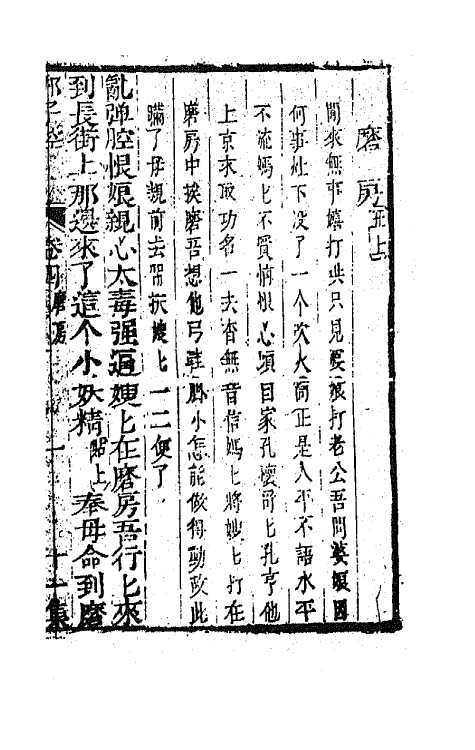 磨房 丑上
閒來無事嬉打洪只見婆娘打老公吾問婆娘因
何事灶下没了一个吹火筒正是人平不語水平
不流媽匕不賢悄恨心頭目家孔懷哥匕孔亨他
上京求取功名一去杳無音信媽匕將嫂匕打在
磨房中挨磨吾想他弓鞋脚小怎能做得動故此
瞞了母親前去帮扶嫂匕一二便了
亂弹腔恨娘親心太毒强逼嫂匕在磨房吾行匕來
到長街上那邊來了這个小妖精 貼上 奉母命到磨
卷四 磨房 一 十二集